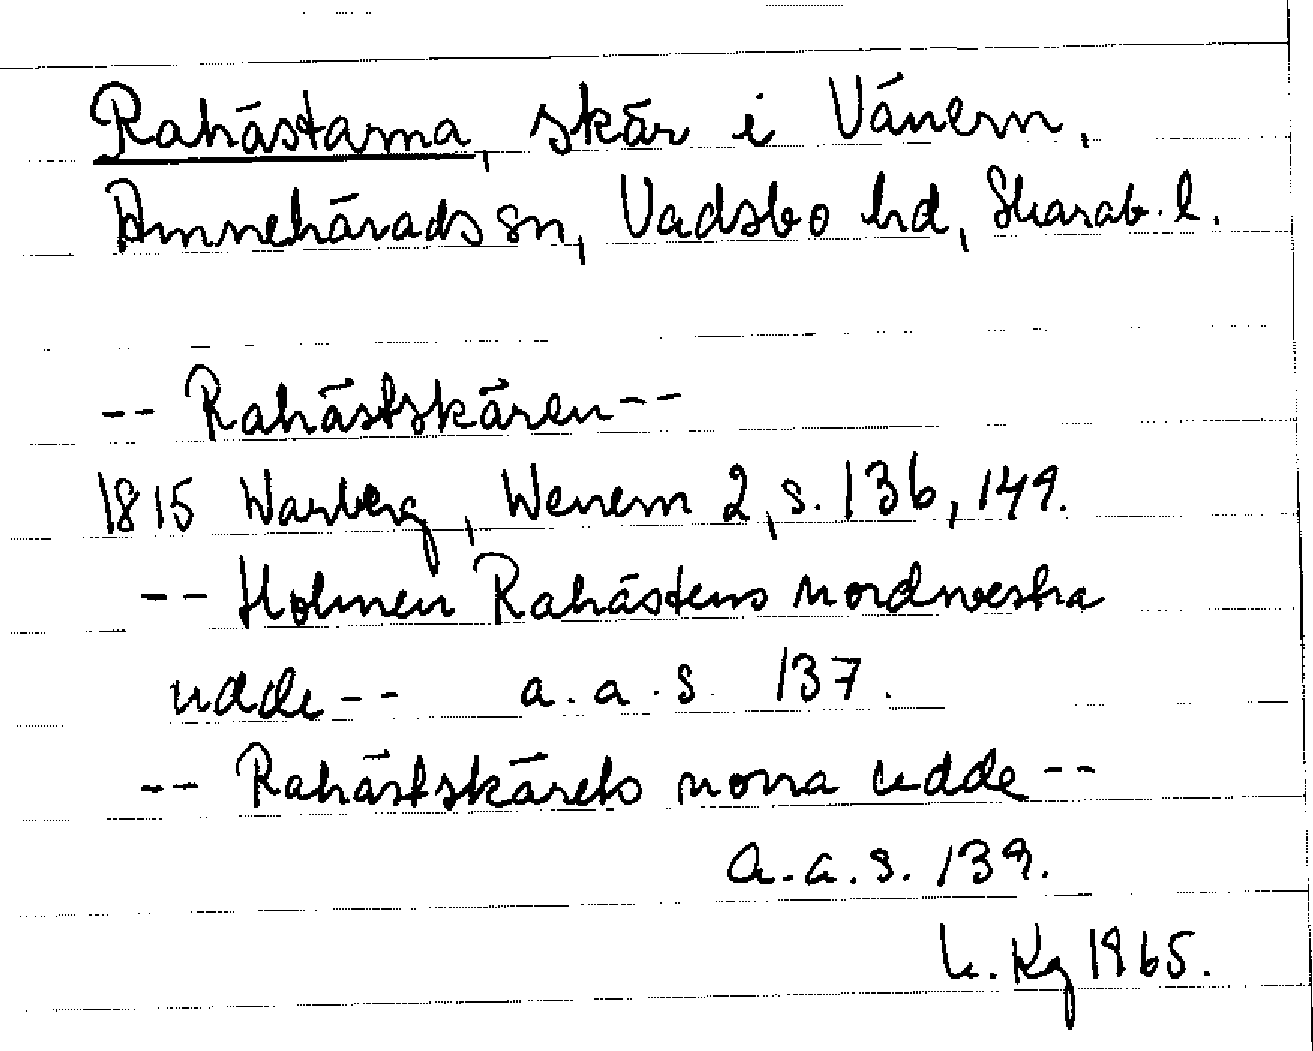 Rahästarna, skär i Vänern,
Amnehärads sn, Vadsbo hd, Skarab. l.
-- Rahästskären --
1815 Warberg, Wenern 2, s. 136, 149.
-- Holmen Rahästens nordvestra
udde -- a. a. s. 137.
-- Rahästskärets norra udde --
a. a. s. 139.
Kg 1965.